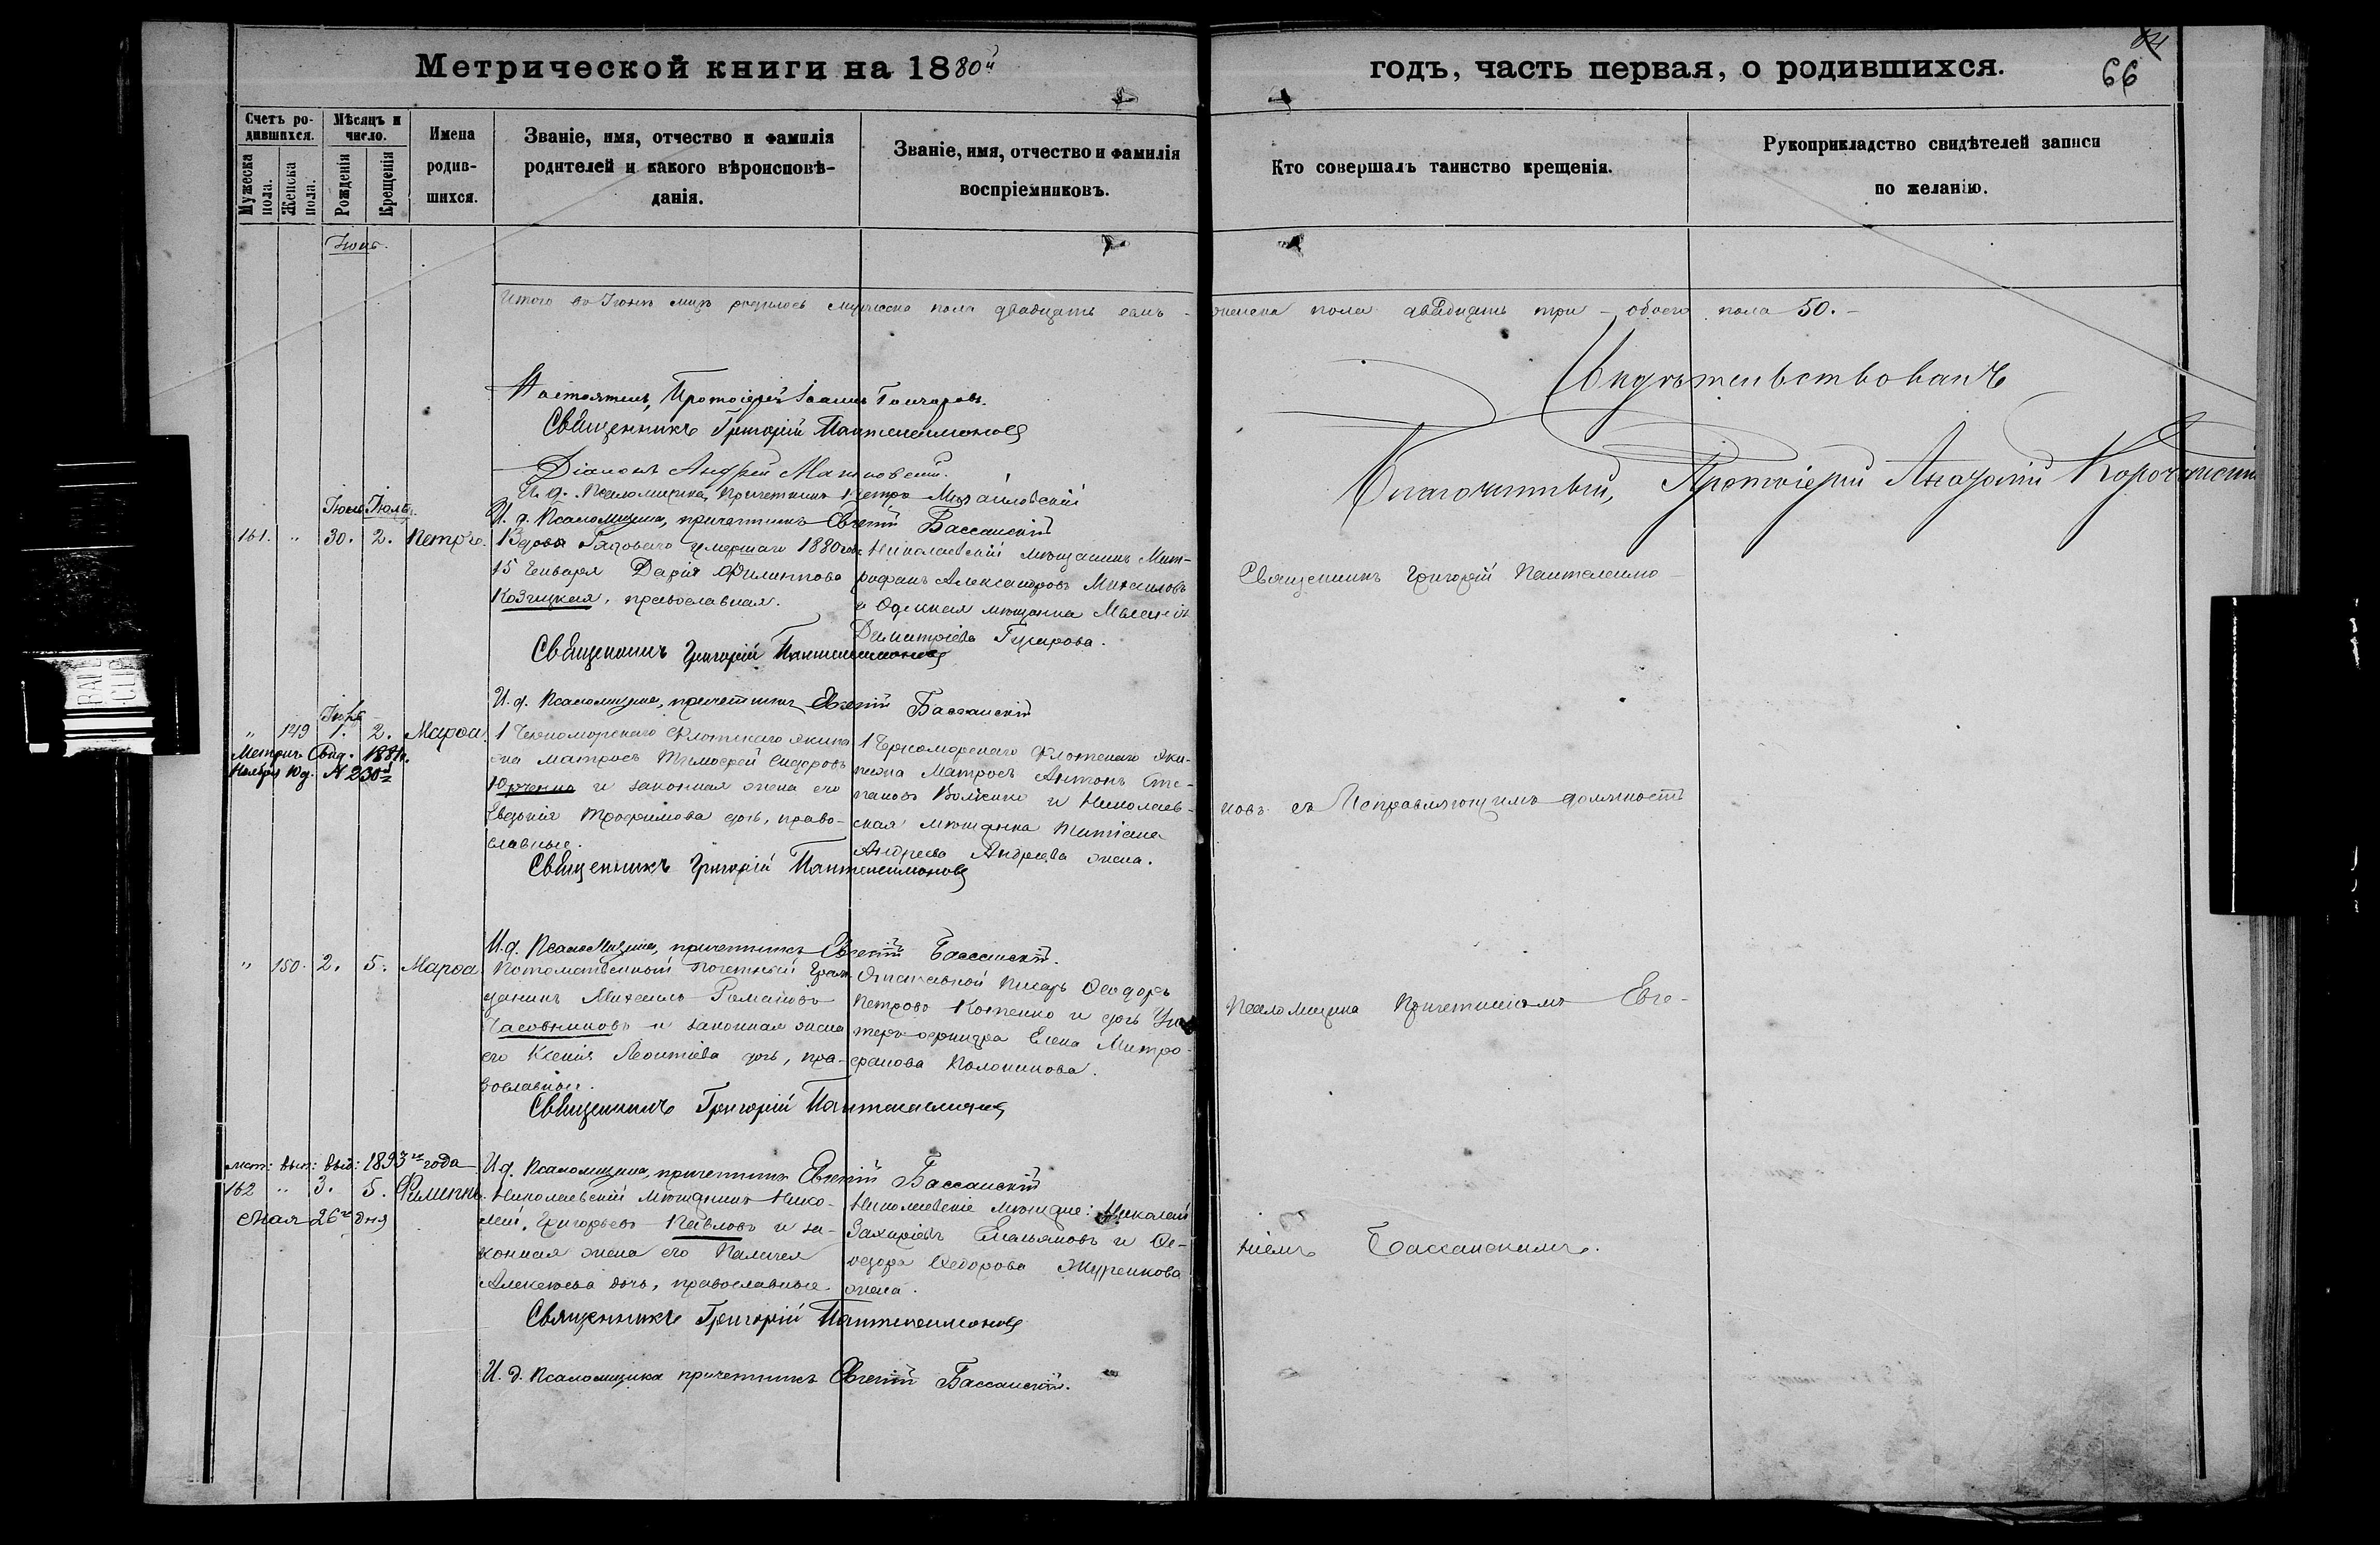 Метрической книги на 1880й годъ, часть первая, о родившихся.
66
Счетъ ро-
дившихся.
Мужеска пола.
Женска пола.
Мѣсяцъ и
число.
Рожденія
Крещенія
Имена
родив-
шихся.
Званіе, имя, отчество и фамилія
родителей и какого вѣроисповѣ-
данія.
Званіе, имя, отчество и фамилія
воспріемниковъ.
Кто совершалъ таинство крещенія.
Рукоприкладство свидѣтелей записи
по желанію.
Іюнь.
Итого въ Іюнѣ родилось мужеска пола двадцать семь - женска пола двадцать три - обоего пола 50.-
Настоятель, Протоіерей Іоаннъ Гончаровъ.
Священникъ Григорій Пантелеимоновъ
Діаконъ Андрей
И. д. Псаломщика, Причетникъ Петръ Михайловскій
И. д. Псаломщика, причетникъ Евгеній Бассанскій
Свидѣтельствовалъ
Благочинный, Протоіерей
Іюнь Іюль.
161. " 30. 2. Петръ.
Вдова Рядоваго умершаго 1880 года
15 Генваря Дарія Филиппова
Козицкая, православная.
Николаевскій мѣщанинъ Мит-
рофанъ Александровъ Михаиловъ
и Одесская мѣщанка Меланія
Димитріева Гусарова.
Священникъ Григорій Пантелеимо-
Священникъ Григорій Пантелеимоновъ
И. д. Псаломщика, причетникъ Евгеній Бассанскій
Іюль
" 149 1. 2. Марѳа
Метрич. Свид. 1881г.
Ноября 10д. № 230й
1 Черноморскаго Флотскаго экипа-
жа матросъ Тимофей Сидоровъ
Юрченко и законная жена его
Евдокія Трофимова дочь, право-
славные.
1 Черноморскаго Флотскаго эки-
пажа Матросъ Антонъ Сте-
пановъ и Николаев-
ская мѣщанка Татіана
Андреева Андреева жена.
новъ съ Исправляющимъ должность
Священникъ Григорій Пантелеимоновъ
И. д. Псаломщика, причетникъ Евгеній Бассанскій.
" 150. 2. 5. Марѳа
Потомственный Почетный Граж-
данинъ Михаилъ Романовъ
Часовниковъ и законная жена
его Ксенія Леонтіева дочь, пра-
вославные.
Отставной Писарь Ѳеодоръ
Петровъ Костенко и дочь Ун-
теръ-офицера Елена Митро-
фанова
Псаломщика Причетникомъ Евге-
Священникъ Григорій Пантелеимоновъ
И. д. Псаломщика, причетникъ Евгеній Бассанскій
мет: вып: выд: 1893го года
162 " 3. 5. Филиппъ.
Мая 26го дня
Николаевскій мѣщанинъ Нико-
лай Григорьевъ Павловъ и за-
конная жена его Пелагея
Алексѣева дочь, православные.
Николаевскіе мѣщане: Николай
Захаріевъ Емельяновъ и Ѳе-
одора Ѳедорова Журенкова
жена.
ніемъ Бассанскимъ.
Священникъ Григорій Пантелеимоновъ
И. д. Псаломщика причетникъ Евгеній Бассанскій.